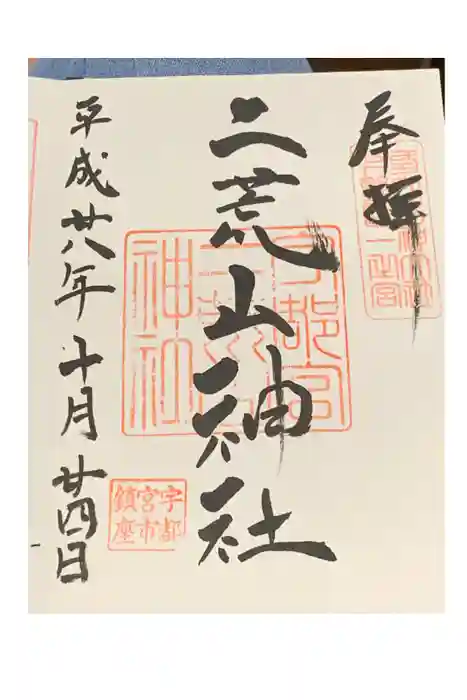 奉拝
二荒山神社
平成廿八年十月廿四日
宇都宮
二荒山
神社
宇都
宮市
鎮座